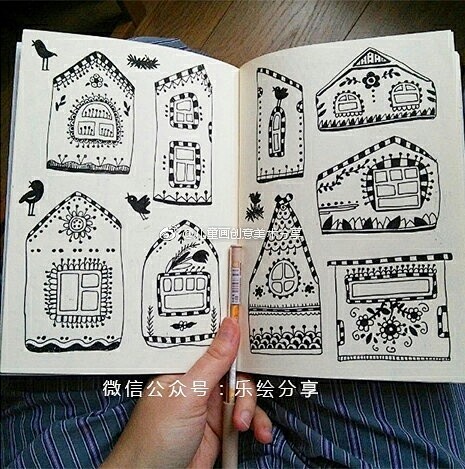 @儿童画创意美术分享
微信公众号：乐绘分享